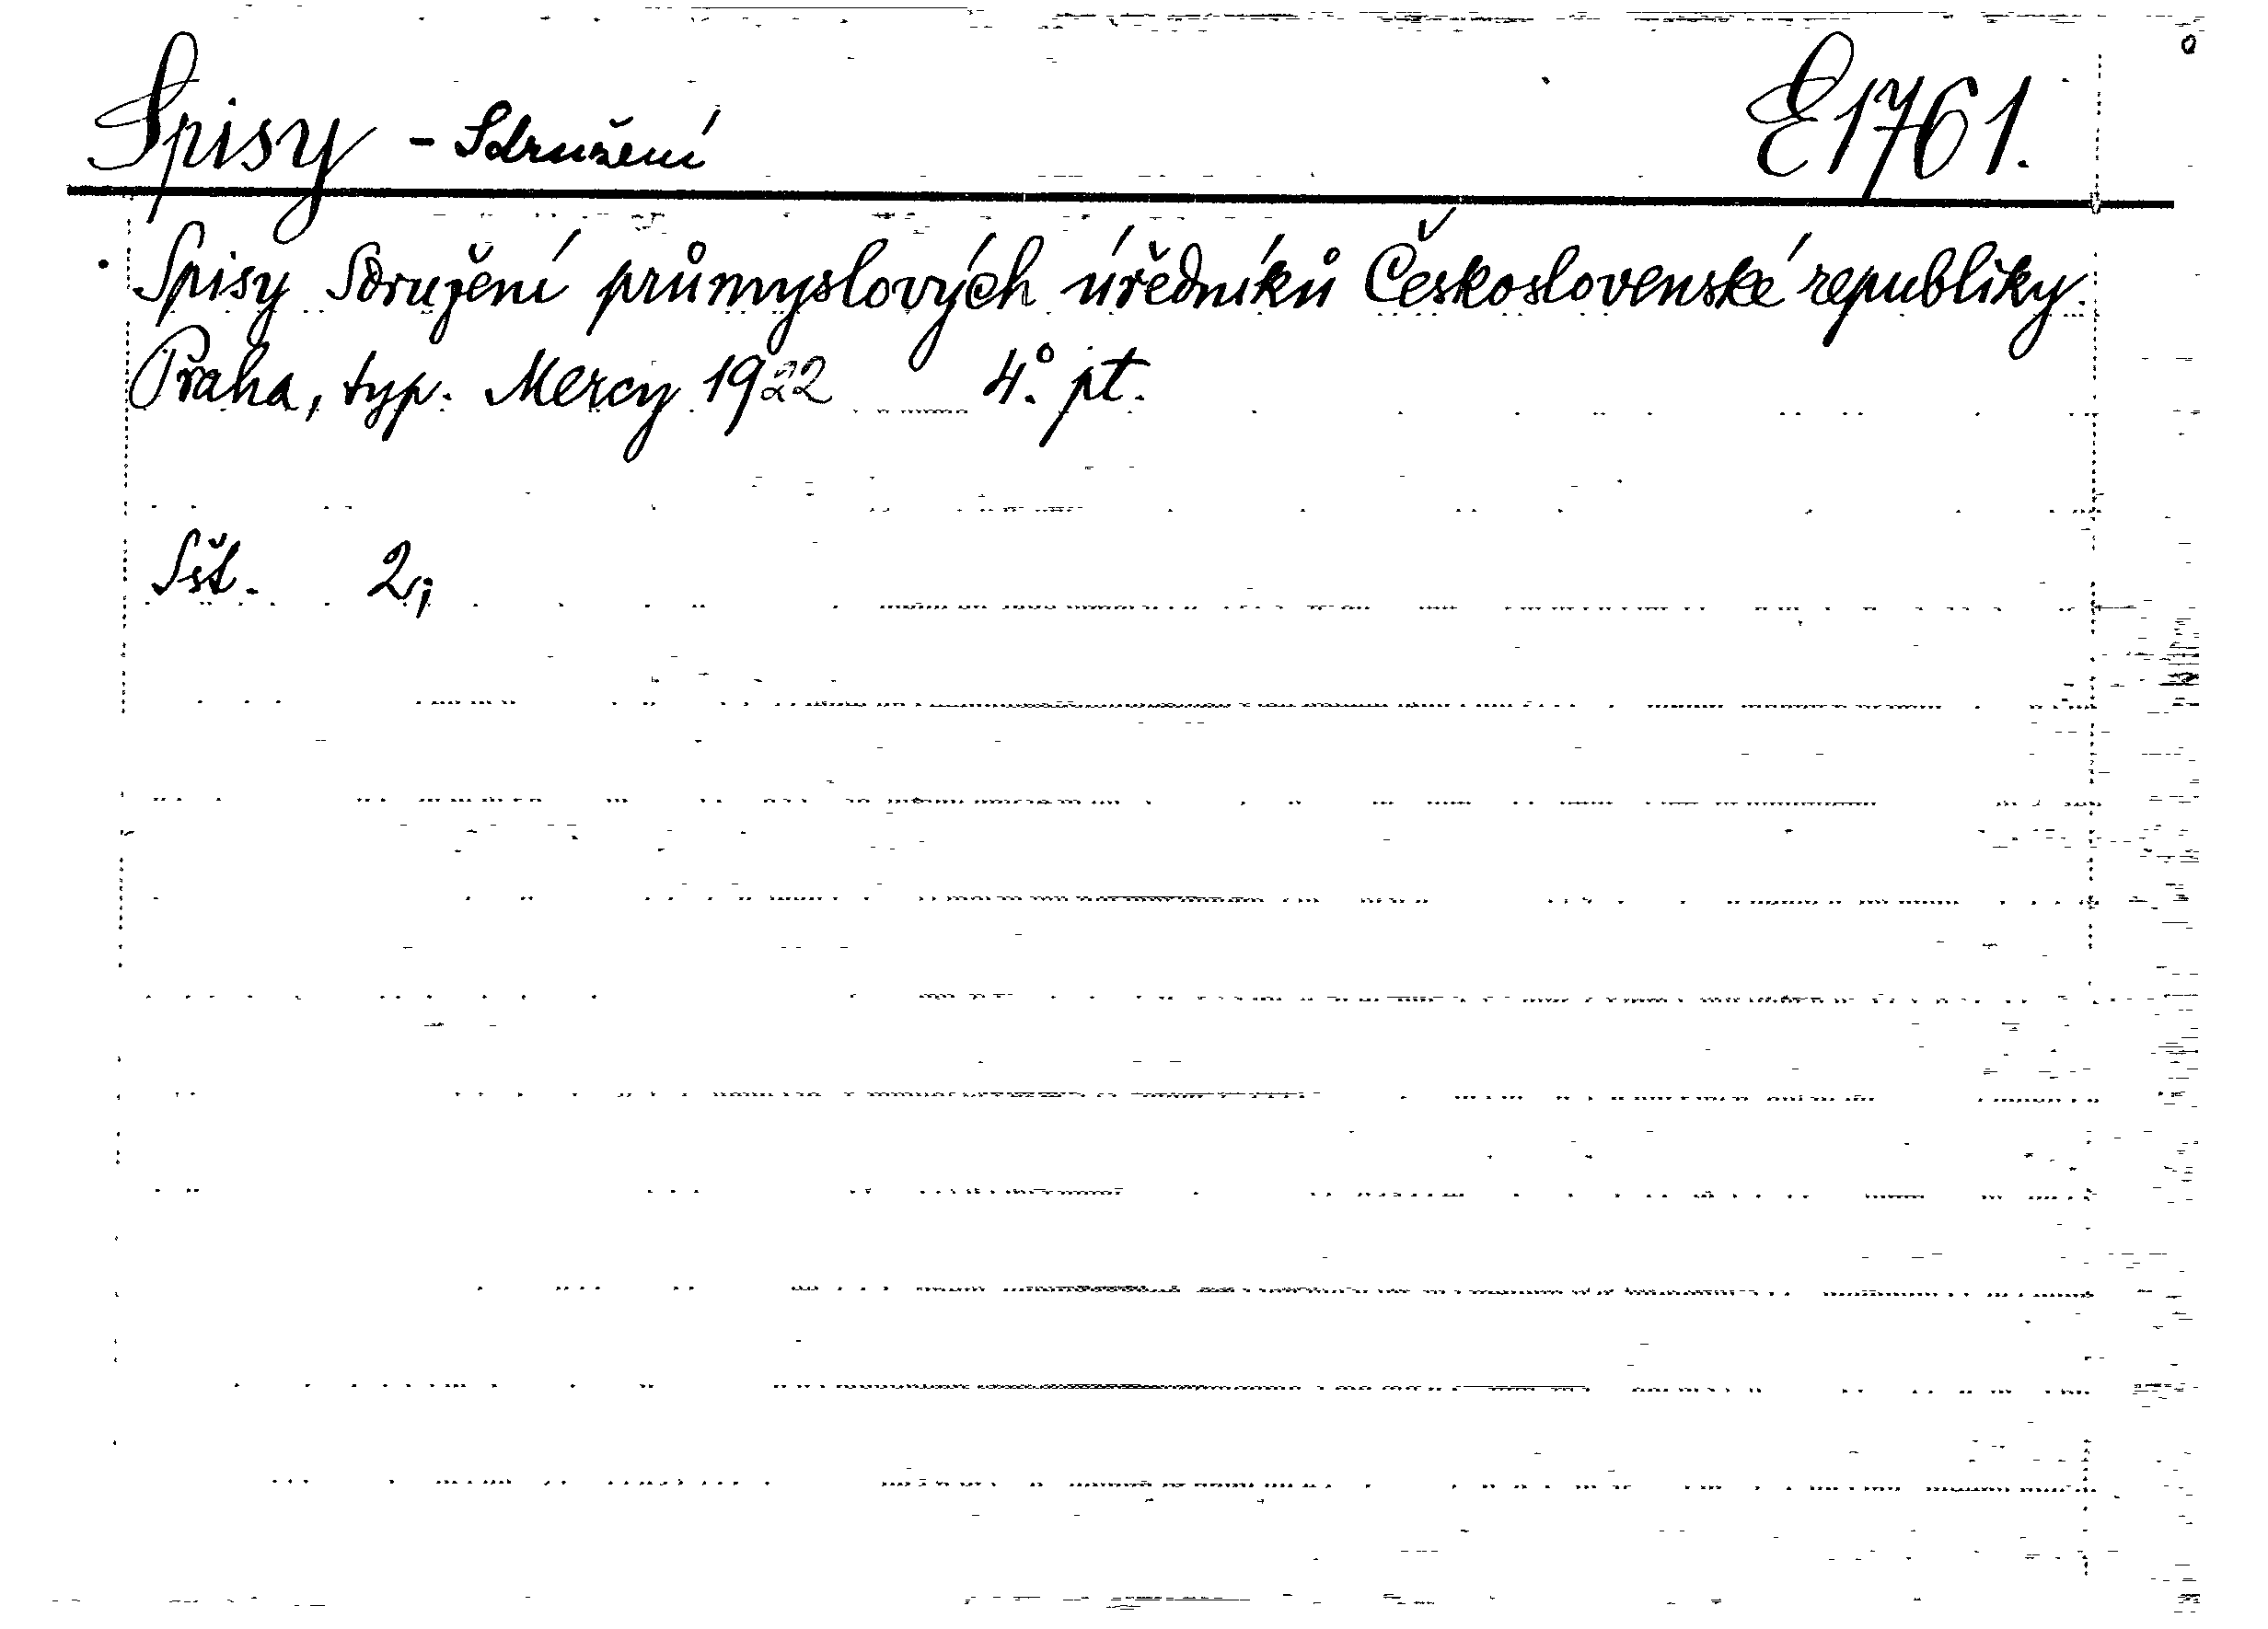 Spisy - Sdružení E1761.
Spisy Sdružení průmyslových úředníků Československé republiky.
Praha, typ. Mercy 1922 4° pt.
Sšt. 2;